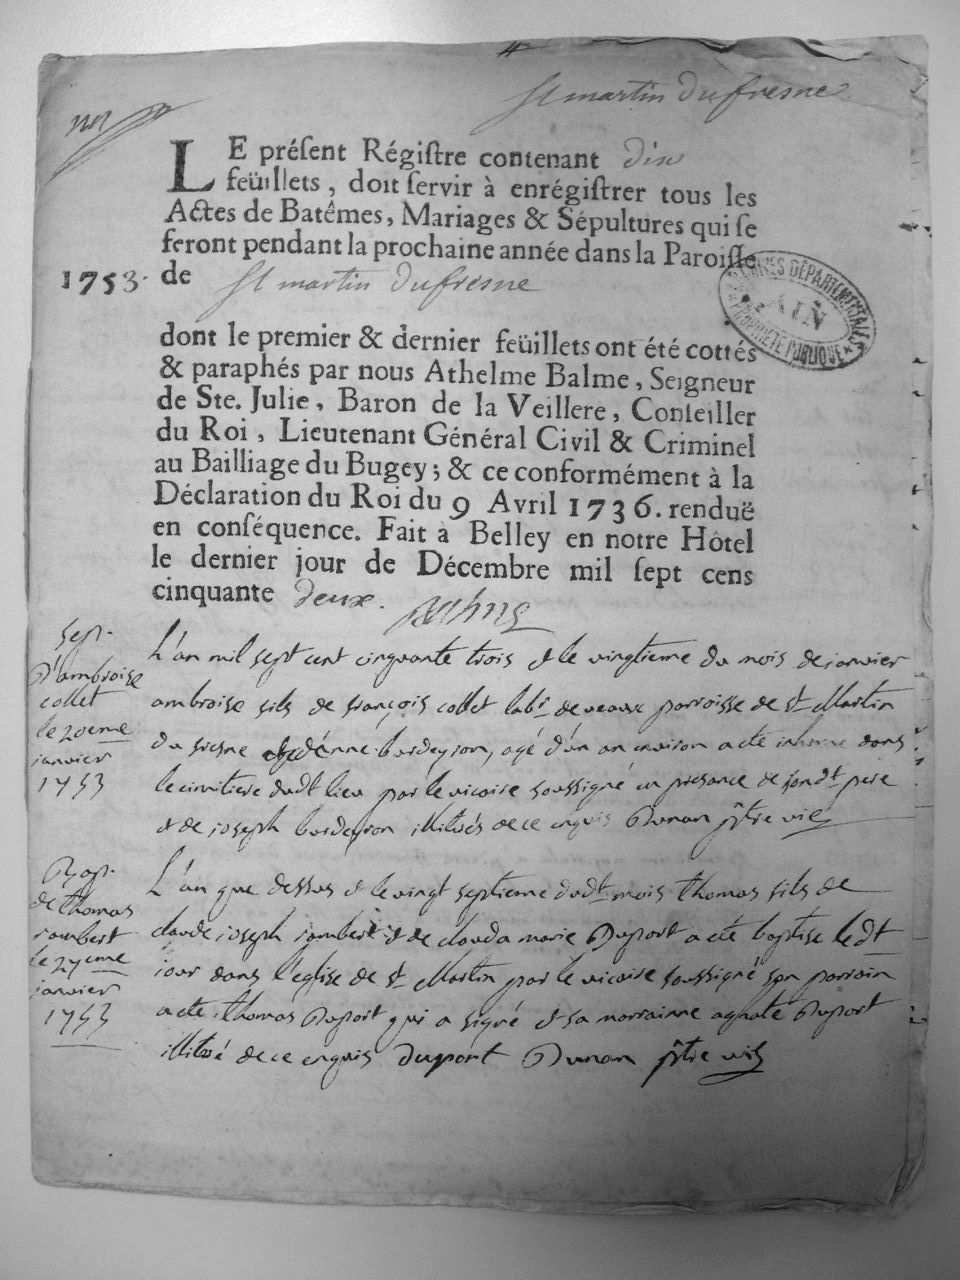 St martin Dufresne
LE préſent Régiſtre contenant dix
feüillets, doit ſervir à enrégiſtrer tous les
Actes de Batêmes, Mariages & Sépultures qui ſe
feront pendant la prochaine année dans la Paroiſſe
1753. de St martin Dufresne
ARCHIVES DÉPARTEMENTALES
AIN
PROPRIÉTÉ PUBLIQUE
dont le premier & dernier feüillets ont été cottés
& paraphés par nous Athelme Balme, Seigneur
de Ste. Julie, Baron de la Veillere, Conſeiller
du Roi, Lieutenant Général Civil & Criminel
au Bailliage du Bugey; & ce conformément à la
Déclaration du Roi du 9 Avril 1736. renduë
en conſéquence. Fait à Belley en notre Hôtel
le dernier jour de Décembre mil ſept cens
cinquante deux.
Sep.
D'ambroise
collet
le 20eme
janvier
1753
L'an mil sept cent cinquante trois et le vingtieme du mois de janvier
ambroise fils de françois collet labr de veaux parroisse de st Martin
du fresne et d'anne bordeyron, agé d'un an environ a eté inhume dans
le cimitiere dudt lieu par le vicaire soussigné en presance de sondt pere
et de joseph bordeyron illitérés de ce enquis Dunan ptre vic
Bap.
de thomas
jambert
le 27eme
janvier
1753
L'an que dessus et le vingt septieme dudt mois thomas fils de
claude joseph jambert et de clauda marie Duport a eté baptise ledt
jour dans l'eglise de st Martin par le vicaire soussigné son parrain
a eté thomas Duport qui a signé et sa marrainne agnate Duport
illitéré de ce enquis duport Dunan ptre vic